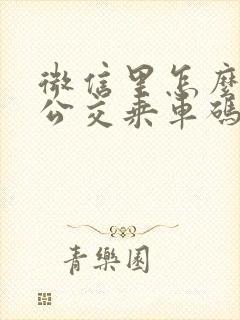 微信里怎麼
公交乘車碼
青樂園